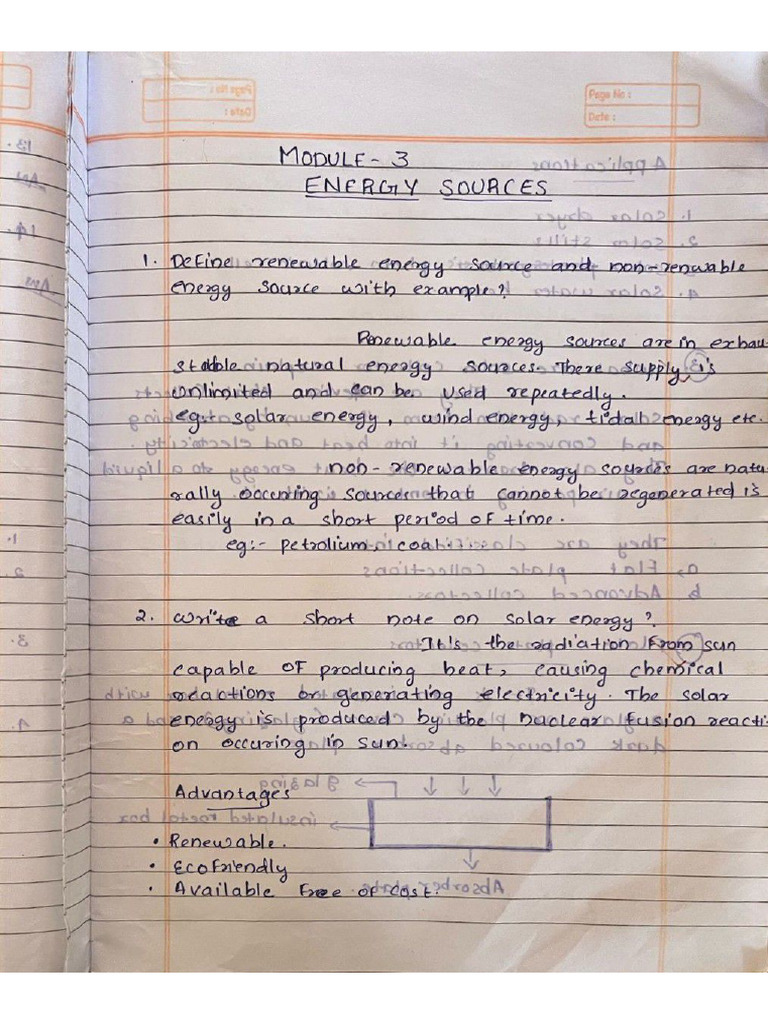 Page No :
Date :
MODULE - 3
ENERGY SOURCES
1. Define renewable energy source and non-renwable
energy source with example?
Renewable energy sources are in exhau-
stable natural energy sources. There supply is
unlimited and can be used repeatedly.
eg:- solar energy, wind energy, tidal energy etc.
non-renewable energy sources are natu-
rally occuring sources that cannot be regenerated
easily in a short period of time.
eg:- petrolium, coal.
2. Write a short note on solar energy?
It's the radiation from sun
capable of producing heat, causing chemical
reactions or generating electricity. The solar
energy is produced by the nuclear fusion reacti-
on occuring in sun.
Advantages
• Renewable.
• Ecofriendly
• Available free of cost.